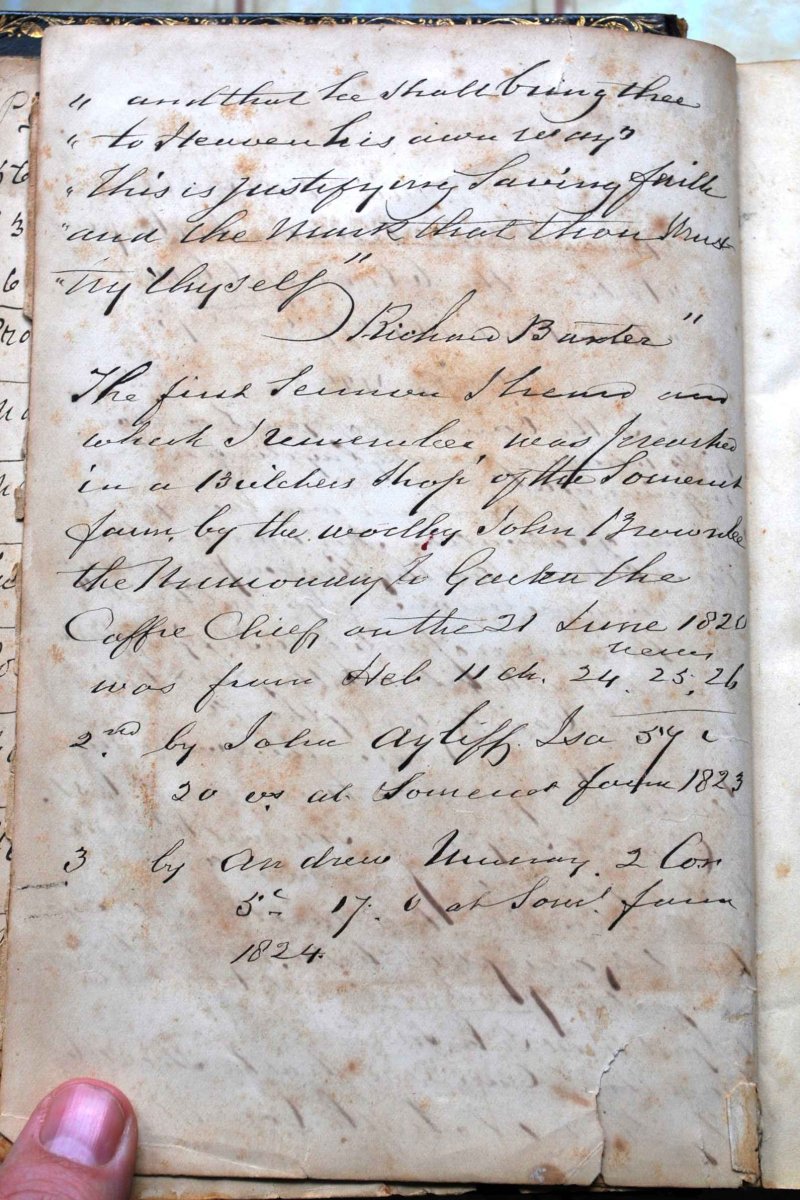 " and that he shall bring thee
" to Heaven his own way"
" This is justifying Saving faith
" and the Mark that thou Must
" try thyself"
Richard Baxter"
The first Sermon I heard and
which I remember, was preached
in a Butchers Shop, of the Somerset
farm, by the worthy John Brownlee
the Missionary to Gaeka the
Caffre Chief, on the 21 June 1820
was from Heb 11 ch. 24, 25, 26
verses
2nd by John Ayliff. Isa 57 c
20 vs at Somerset farm 1823
3 by Andrew Murray. 2 Cor
5 c 17. v at Somt. farm
1824.
P
56
3
6